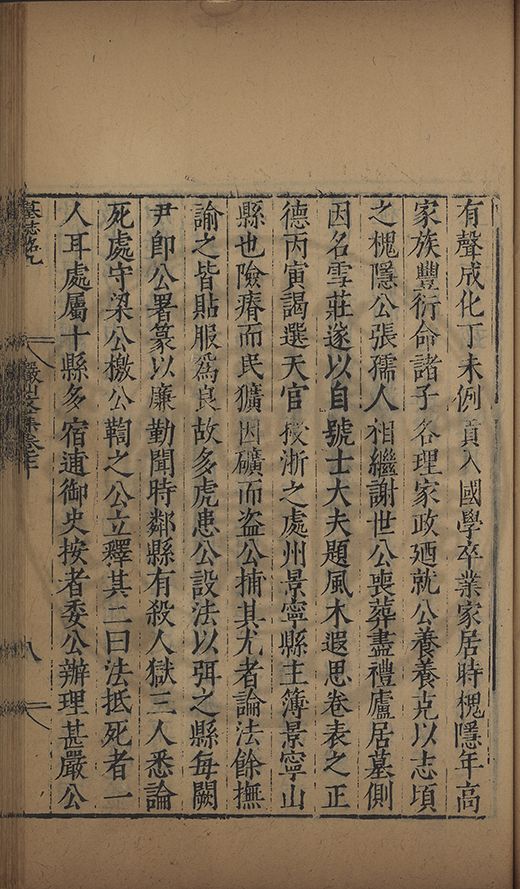 有聲成化丁未例貢入國學卒業家居時槐隱年高
家族豐衍命諸子各理家政廼就公養養克以志頃
之槐隱公張孺人相繼謝世公喪葬盡禮廬居墓側
因名雪莊遂以自號士大夫題風木遐思卷表之正
德丙寅謁選天官授浙之處州景寧縣主簿景寧山
縣也險瘠而民獷因礦而盜公捕其尤者論法餘撫
諭之皆貼服爲良故多虎患公設法以弭之縣每闕
尹卽公署篆以廉勤聞時鄰縣有殺人獄三人悉論
死處守梁公檄公鞫之公立釋其二曰法抵死者一
人耳處屬十縣多宿逋御史按者委公辦理甚嚴公
八